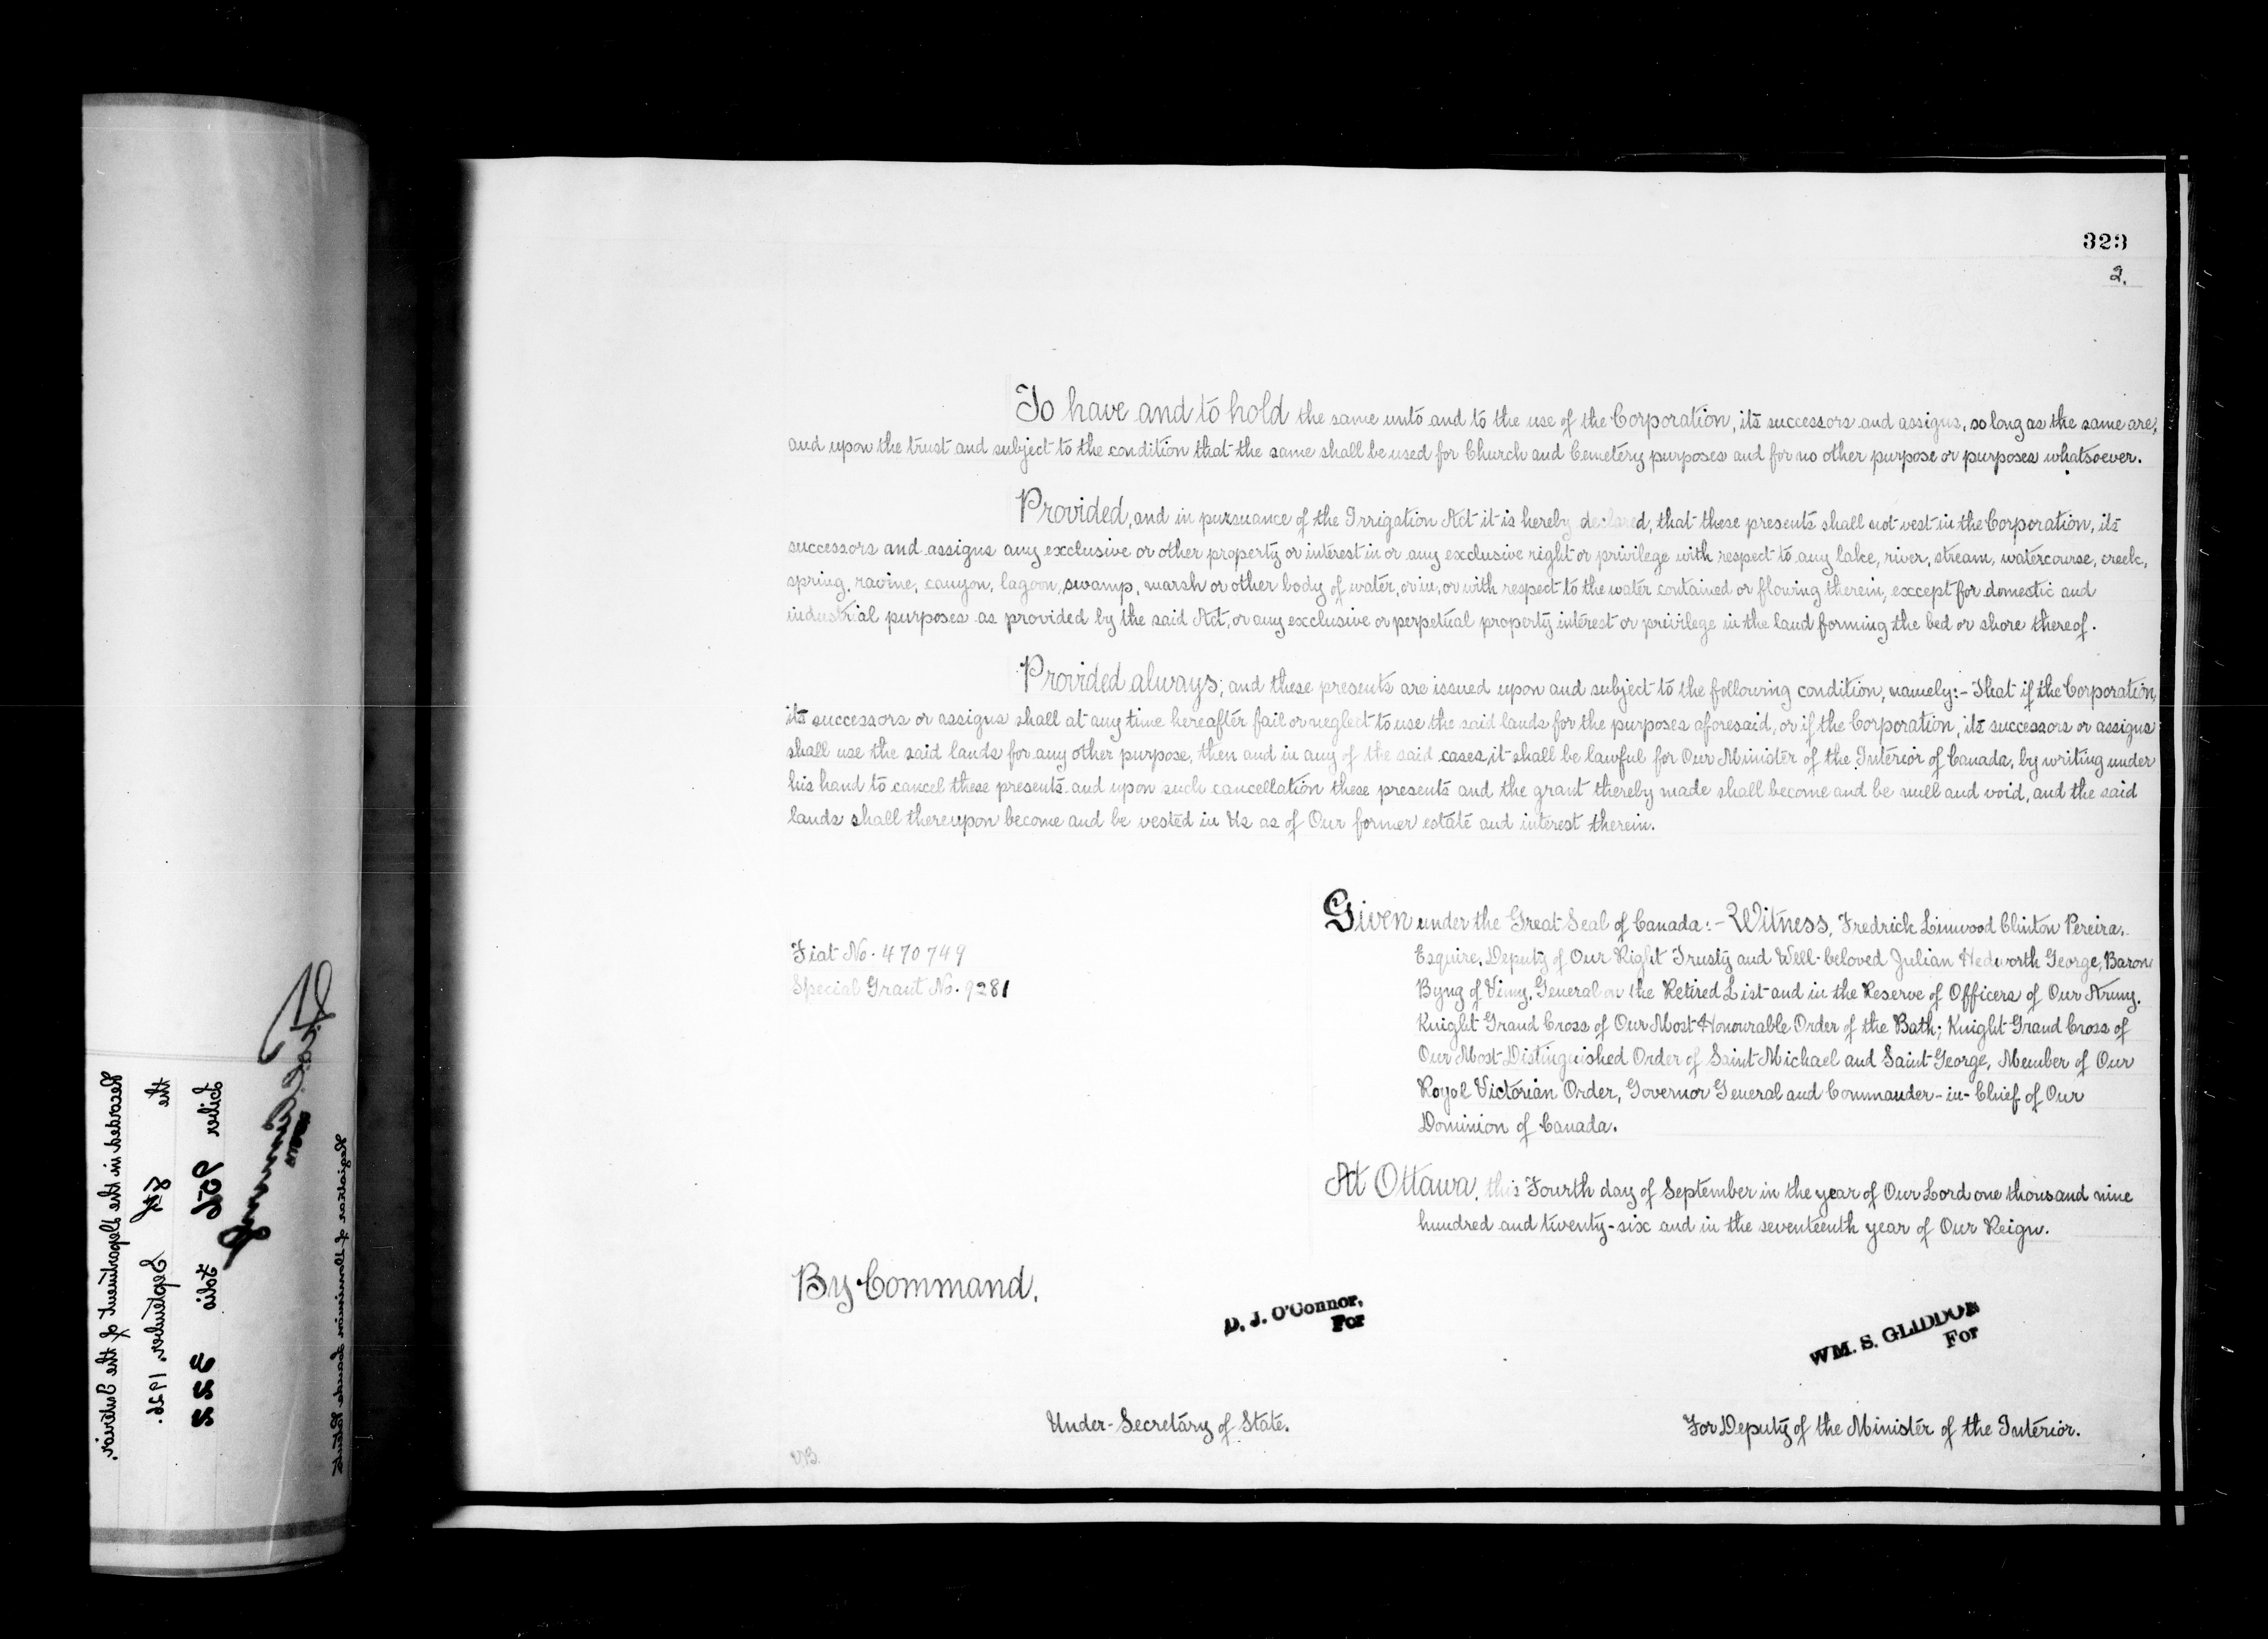 323
2.
To have and to hold the same unto and to the use of the Corporation, its successors and assigns, so long as the same are,
and upon the trust and subject to the condition that the same shall be used for Church and Cemetery purposes and for no other purpose or purposes whatsoever.
Provided, and in pursuance of the Irrigation Act it is hereby declared, that these presents shall not vest in the Corporation, its
successors and assigns any exclusive or other property or interest in or any exclusive right or privilege with respect to any lake, river, stream, watercourse, creek,
spring, ravine, canyon, lagoon, swamp, marsh or other body of water, or in, or with respect to the water contained or flowing therein, except for domestic and
industrial purposes as provided by the said Act, or any exclusive or perpetual property interest or privilege in the land forming the bed or shore thereof.
Provided always; and these presents are issued upon and subject to the following condition, namely:- That if the Corporation,
its successors or assigns shall at any time hereafter fail or neglect to use the said lands for the purposes aforesaid, or if the Corporation, its successors or assigns
shall use the said lands for any other purpose, then and in any of the said cases, it shall be lawful for Our Minister of the Interior of Canada, by writing under
his hand to cancel these presents and upon such cancellation these presents and the grant thereby made shall become and be null and void, and the said
lands shall thereupon become and be vested in Us as of Our former estate and interest therein.
Given under the Great Seal of Canada:- Witness, Fredrick Linwood Clinton Pereira,
Esquire, Deputy of Our Right Trusty and Well-beloved Julian Hedworth George, Baron
Byng of Vimy, General on the Retired List and in the Reserve of Officers of Our Army,
Knight Grand Cross of Our Most Honourable Order of the Bath; Knight Grand Cross of
Our Most Distinguished Order of Saint Michael and Saint George, Member of Our
Royal Victorian Order, Governor General and Commander-in-Chief of Our
Dominion of Canada.
Fiat No. 470749
Special Grant No. 9281
At Ottawa, this Fourth day of September in the year of Our Lord one thousand nine
hundred and twenty-six and in the seventeenth year of Our Reign.
By Command,
D. J. O'Connor,
For
WM. S. GLIDDON
For
Under-Secretary of State.
For Deputy of the Minister of the Interior.
Recorded in the Department of the Interior,
the 8th September, 1926.
Liber 956 Folio 322
Registrar of Dominion Lands Patents